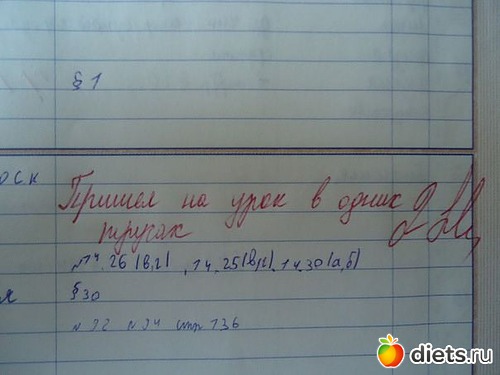 § 1
оск
Пришел на урок в одних
трусах
2
№14.26(в,г), 14.25(в,г), 14.30(а,б)
я
§30
№32 №34 стр 136
diets.ru